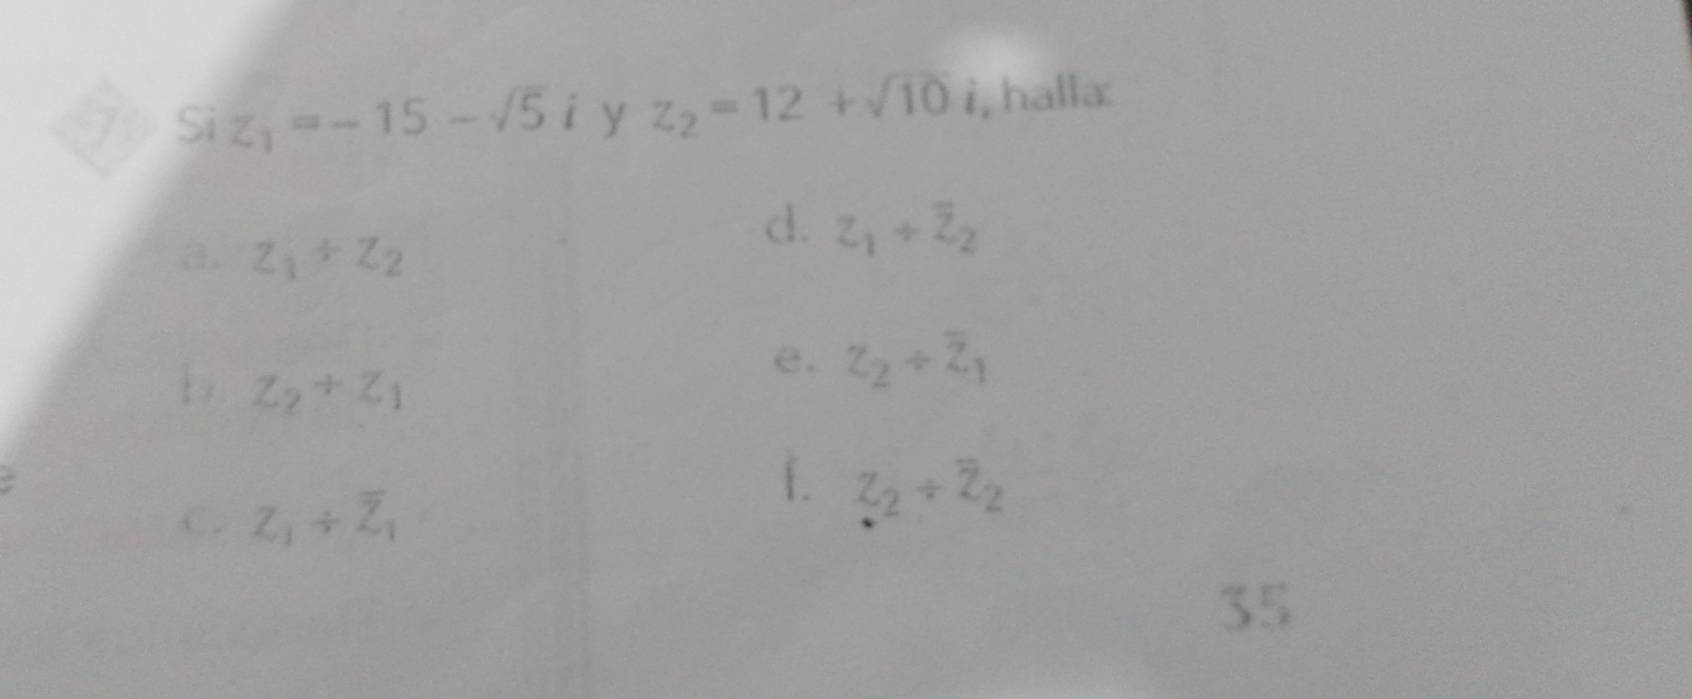 7. Si z₁ = – 15 – √5 i y z₂ = 12 + √10 i, halla:
a. z₁ ÷ z₂
d. z₁ ÷ z̅₂
b. z₂ ÷ z₁
e. z₂ ÷ z̅₁
c. z₁ ÷ z̅₁
f. z₂ ÷ z̅₂
35